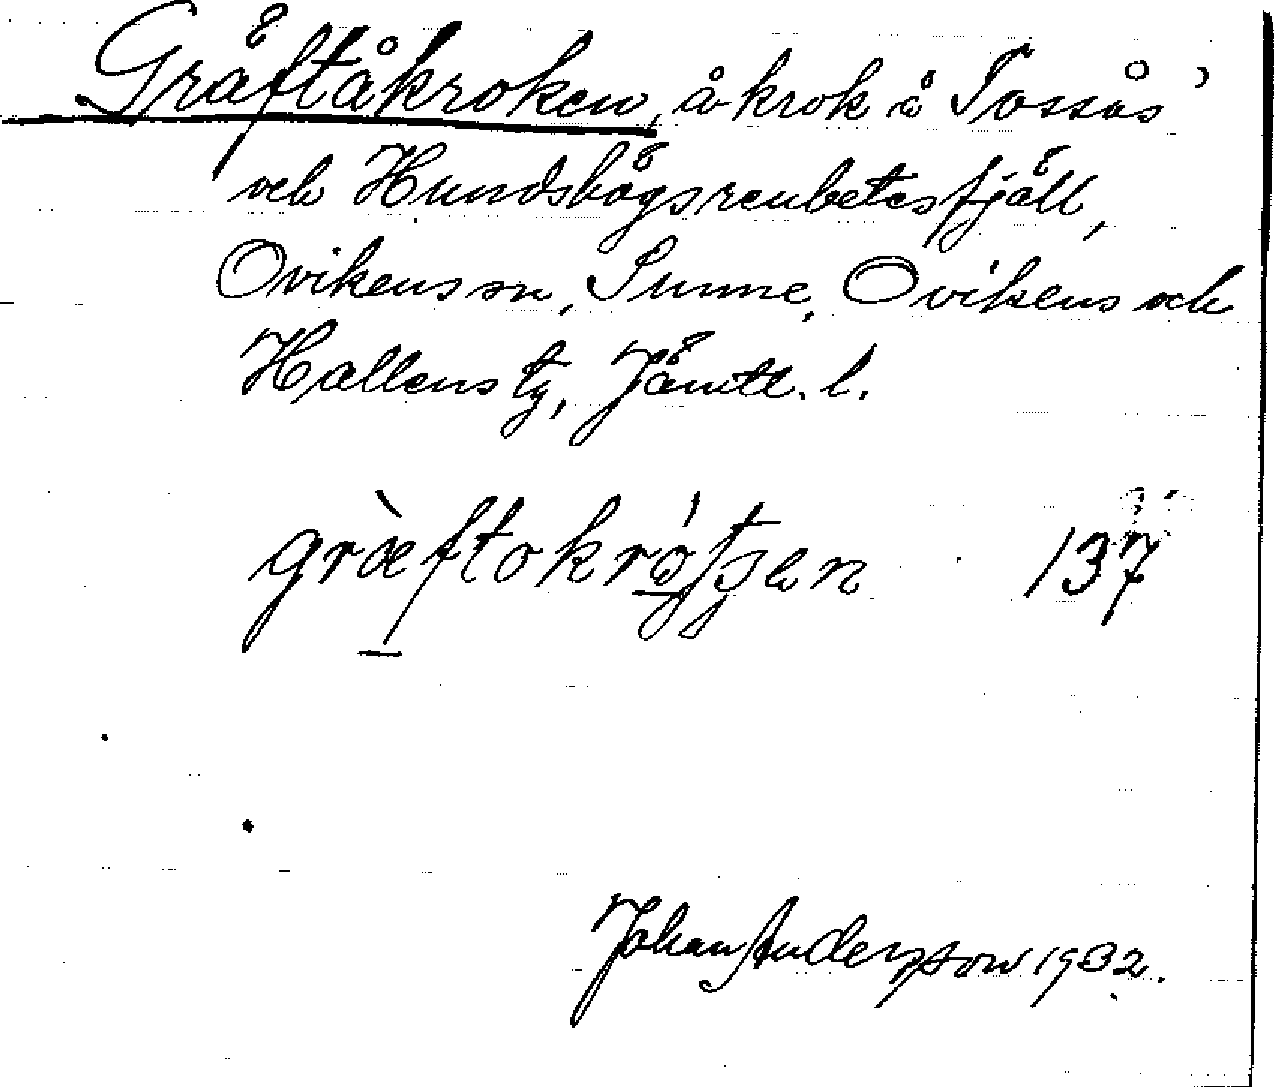 Gräftåkroken, åkrok å Tossås
och Hundshögsrenbetesfjäll,
Ovikens sn, Sunne, Ovikens och
Hallens tg, Jämtl. l.
græftokro̱ʃɟen 137
Johan Andersson 1932.